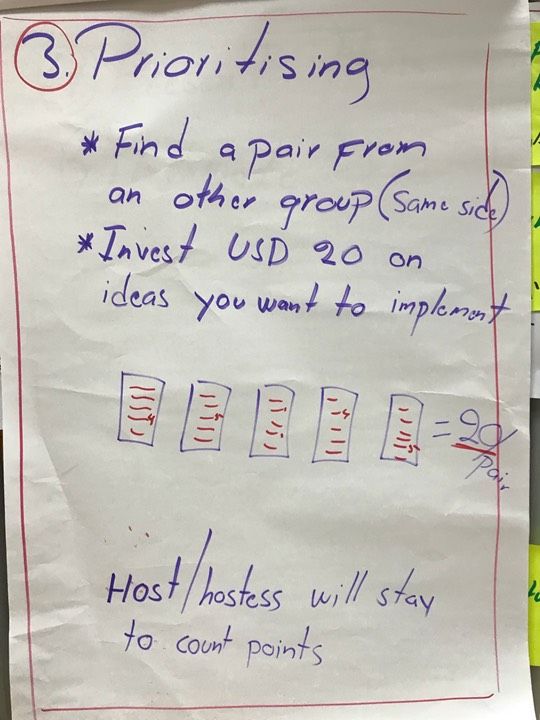 3. Prioritising
* Find a pair from
an other group (same side)
* Invest USD 20 on
ideas you want to implement
= 20/
pair
Host/hostess will stay
to count points